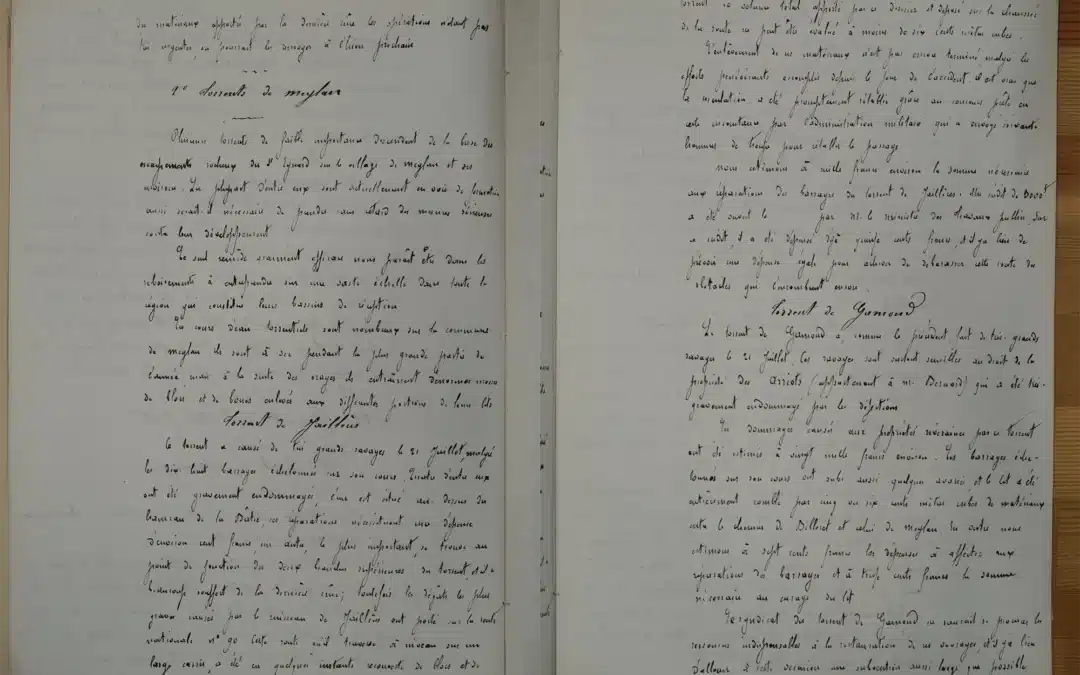 des matériaux apportés par la dernière crue les opérations n'étant pas
très urgentes, on pourrait les arrayer à l'hiver prochain
1° Torrents de Meylan
Plusieurs torrents de faible importance descendent de la base des
escarpements rocheux du St Eynard sur le village de Meylan et ses
environs. La plupart d'entre eux sont actuellement en voie de formation
aussi serait-il nécessaire de prendre sans retard des mesures sérieuses
contre leur développement
Le seul remède vraiment efficace nous paraît être dans les
reboisements à entreprendre sur une vaste échelle dans toute la
région qui constitue leurs bassins de réception
Les cours d'eau torrentiels sont nombreux sur la commune
de Meylan ils sont à sec pendant la plus grande partie de
l'année, mais à la suite des orages ils entraînent d'énormes masses
de blocs et de boues enlevées aux différentes portions de leurs lits
Torrent de Jaillières
Ce torrent a causé de très grands ravages le 21 Juillet, malgré
les dix huit barrages échelonnés sur son cours. Quatre d'entre eux
ont été gravement endommagés, l'un est situé au dessus du
hameau de la Bâtie, ses réparations nécessitent une dépense
d'environ cent francs, un autre, le plus important, se trouve au
point de jonction des deux branches supérieures du torrent et il a
beaucoup souffert de la dernière crue; toutefois les dégâts les plus
graves causés par le ruisseau de Jaillières ont porté sur la route
nationale n° 90 Cette route qu'il traverse à niveau sur un
large cassis, a été en quelques instants recouverte de blocs et de
torrent le volume total apporté par ce dernier et déposé sur la chaussée
de la route ne peut être évalué à moins de six cents mètres cubes.
L'enlèvement de ces matériaux n'est pas encore terminé, malgré les
efforts persévérants accomplis depuis le jour de l'accident, il est vrai que
la circulation a été promptement rétablie grâce au concours prêté en
cette circonstance par l'administration militaire qui a envoyé soixante
hommes de troupe pour rétablir le passage
Nous estimons à mille francs environ la somme nécessaire
aux réparations des barrages du torrent de Jaillières. Un crédit de 3000f
a été ouvert le par M. le ministre des travaux publics, sur
ce crédit, il a été dépensé déjà quinze cents francs, et il y a lieu de
prévoir une dépense égale pour achever de débarrasser cette route des
obstacles qui l'encombrent encore.
Torrent de Gamond
Le torrent de Gamond a, comme le précédent fait de très grands
ravages le 21 Juillet Ces ravages sont surtout sensibles au droit de la
propriété des Arriots (appartenant à Mr Bernard) qui a été très
gravement endommagée par les déjections
Les dommages causés aux propriétés riveraines par ce torrent
ont été estimés à vingt mille francs environ. Les barrages éche-
lonnés sur son cours ont subi aussi quelques avaries et le lit a été
entièrement comblé par cinq ou six cents mètres cubes de matériaux
entre le chemin de Billerot et celui de Meylan En outre nous
estimons à sept cents francs les dépenses à affecter aux
réparations des barrages et à cents francs la somme
nécessaire au curage du lit
Le syndicat du torrent de Gamond ne saurait se procurer les
ressources indispensables à la restauration de ces ouvrages, et il y a lieu
d'allouer à cette occasion une subvention aussi large que possible